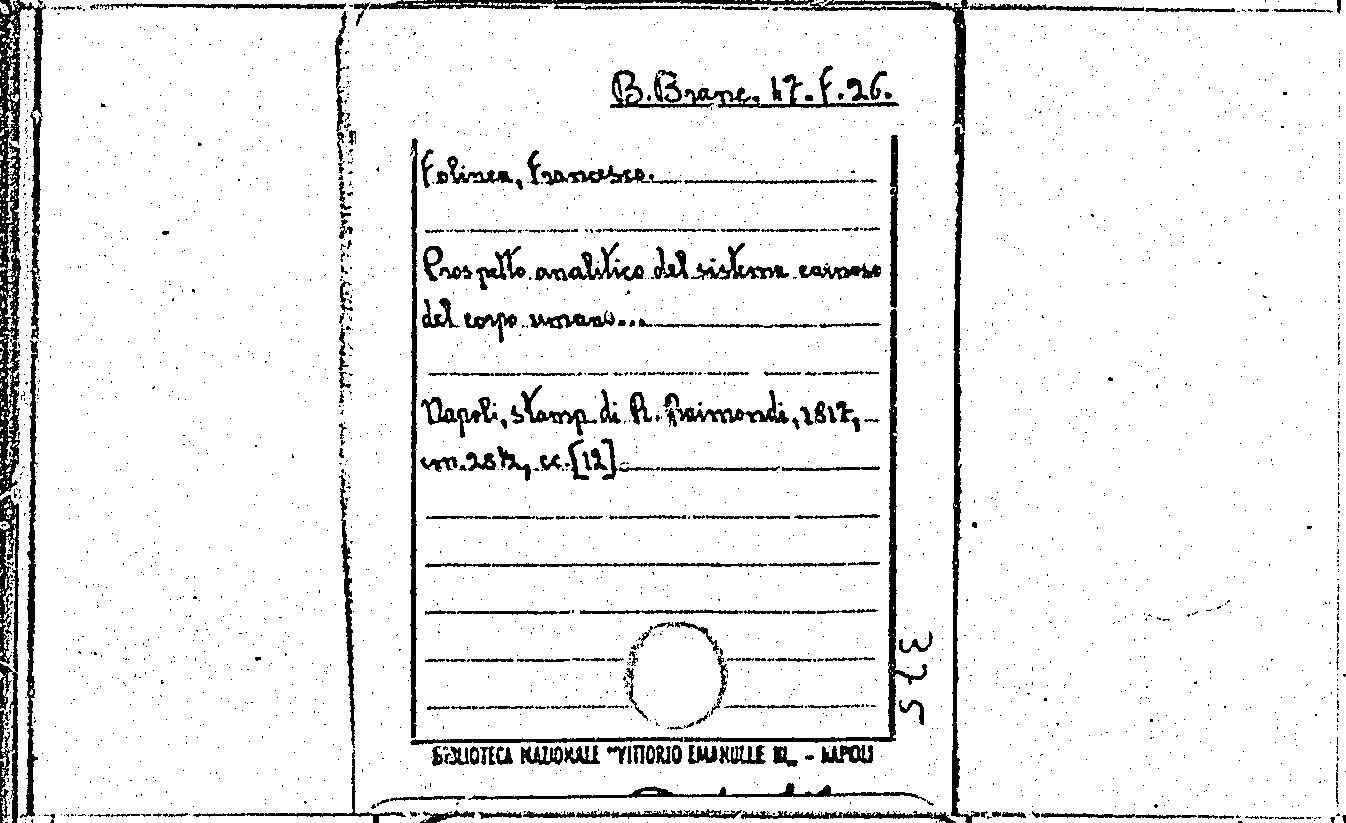 B. Branc. 47. F. 26.
Folinea, Francesco.
Prospetto analitico del sistema cavernoso
del corpo umano...
Napoli, stamp. di R. Raimondi, 1817,
cm. 28½, cc. [12]
375
BIBLIOTECA NAZIONALE "VITTORIO EMANUELE III„ - NAPOLI